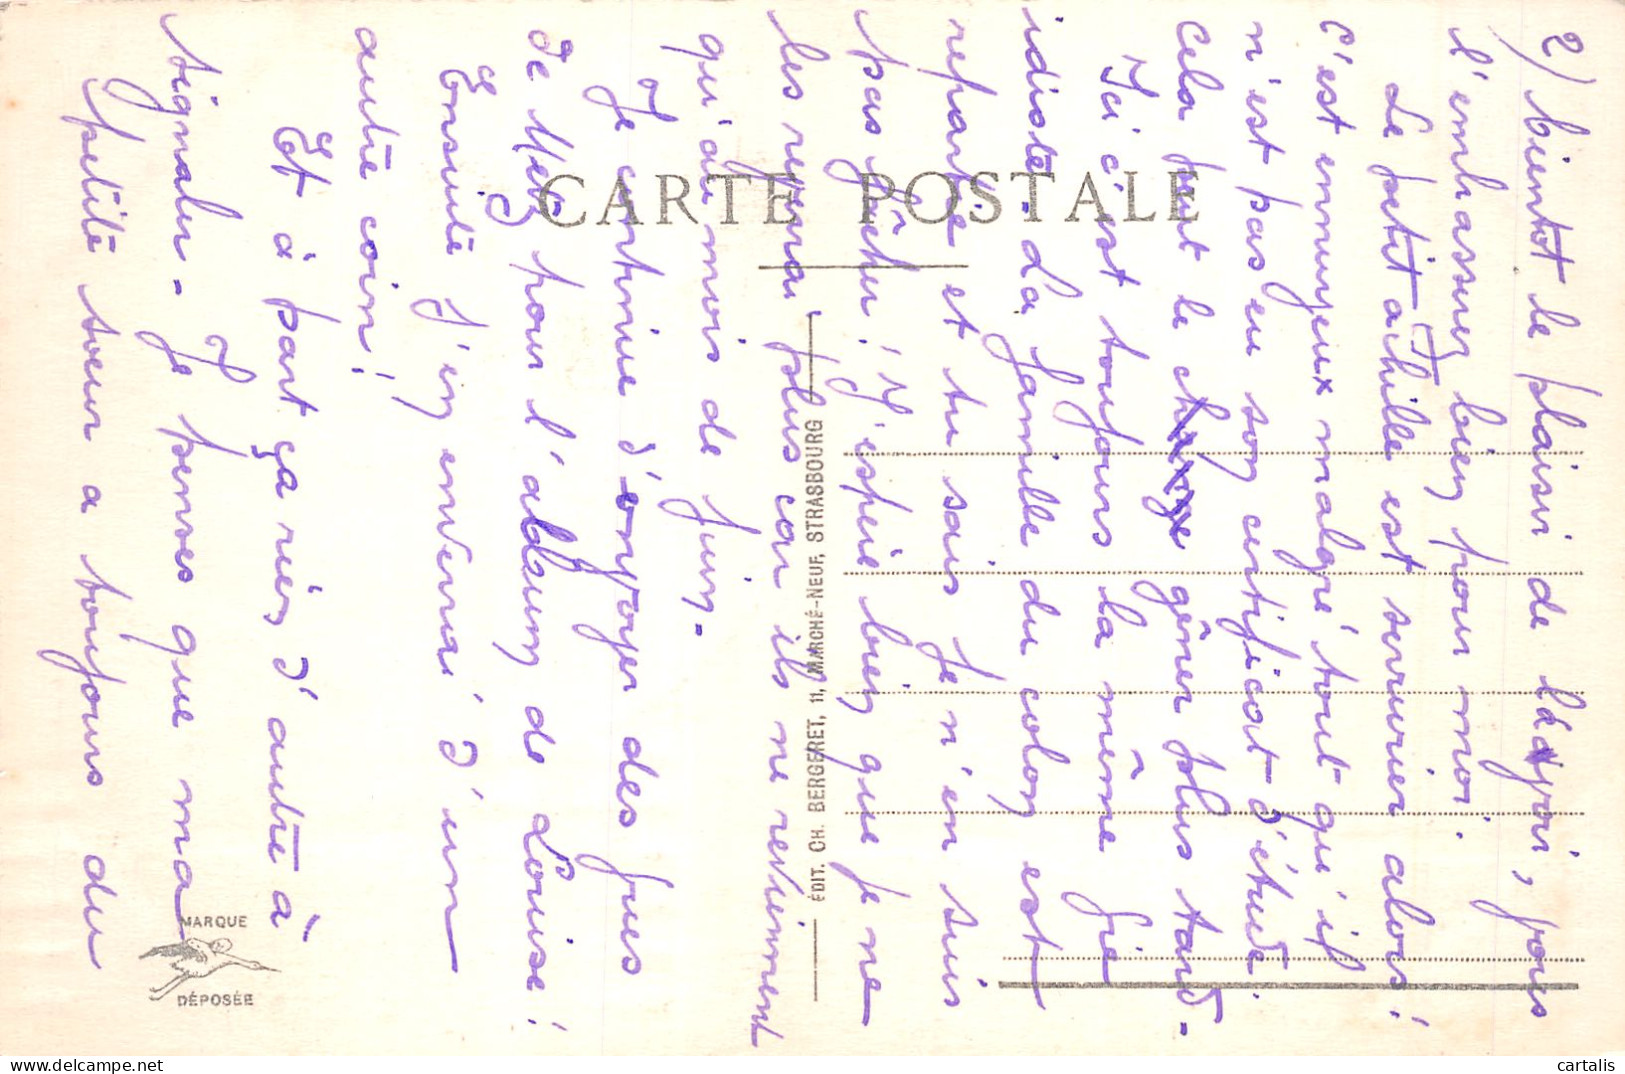 2) bientot le plaisir de la voir, fais
l'embrasser bien pour moi.
Le petit achille est serrurier alors!
c'est ennuyeux malgré tout qu'il
n'est pas eu son certificat d'étude
cela peut le gêner plus tard.
Ici c'est toujours la même vie
idiote. La famille du colon est
repartie et tu sais je n'en suis
pas fâché! J'espère bien que je ne
les reverrai plus car ils ne reviennent
qu'au mois de juin.
Je continue d'envoyer des vues
de Metz pour l'album de Louise!
Ensuite j'en enverrai d'un
autre coin!
Et à part ça rien d'autre à
signaler. Je penses que ma
petite soeur a toujours du
CARTE POSTALE
ÉDIT. CH. BERGERET, 11, MARCHÉ-NEUF, STRASBOURG
MARQUE
DÉPOSÉE
cartalis